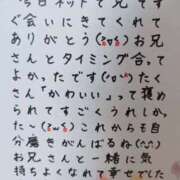 今日ネットで兄す
ぐ会いにきてくれて
ありがとう(°▽°)お兄
さんとタイミング合って
よかったです(°▽°)たく
さん「かわいい」って褒め
られてすごーうれしかっ
た〜(≧ω≦)これからも自
分磨きがんばるね(°∪°)
お兄さんと一緒に気
持ちよくなれて幸せでした